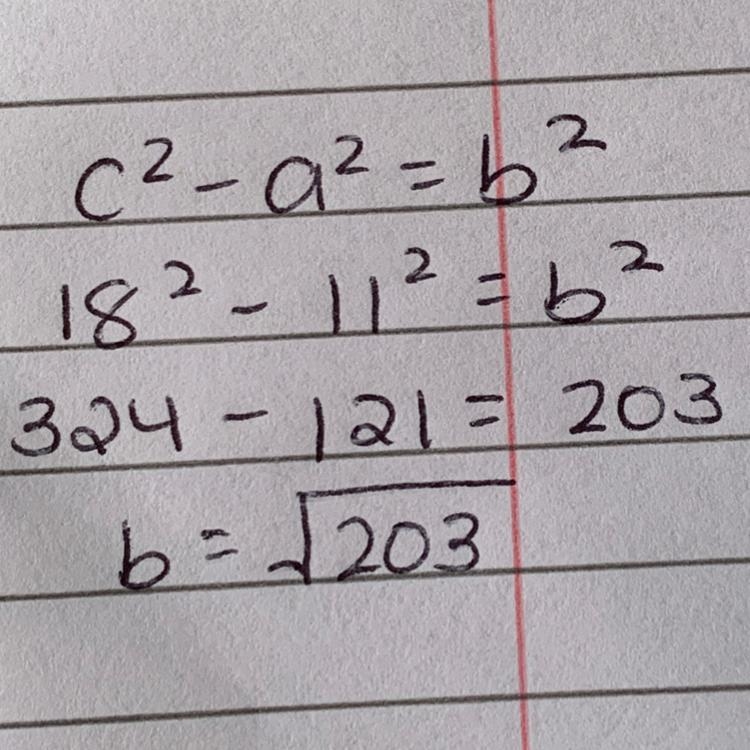 c² - a² = b²
18² - 11² = b²
324 - 121 = 203
b = √203